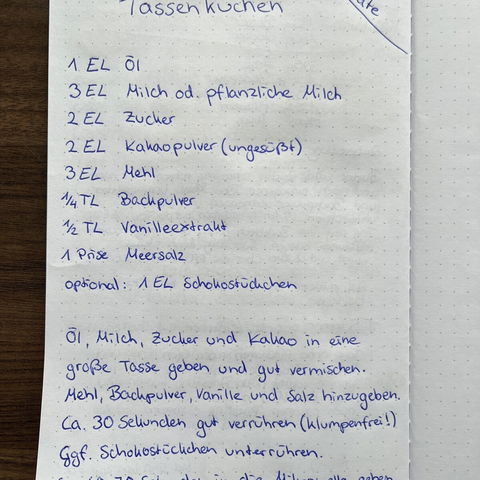 Tassenkuchen
1 EL Öl
3 EL Milch od. pflanzliche Milch
2 EL Zucker
2 EL Kakaopulver (ungesüßt)
3 EL Mehl
1/4 TL Backpulver
1/2 TL Vanilleextrakt
1 Prise Meersalz
optional: 1 EL Schokostückchen
Öl, Milch, Zucker und Kakao in eine
große Tasse geben und gut vermischen.
Mehl, Backpulver, Vanille und Salz hinzugeben.
Ca. 30 Sekunden gut verrühren (klumpenfrei!)
Ggf. Schokostückchen unterrühren.
in die